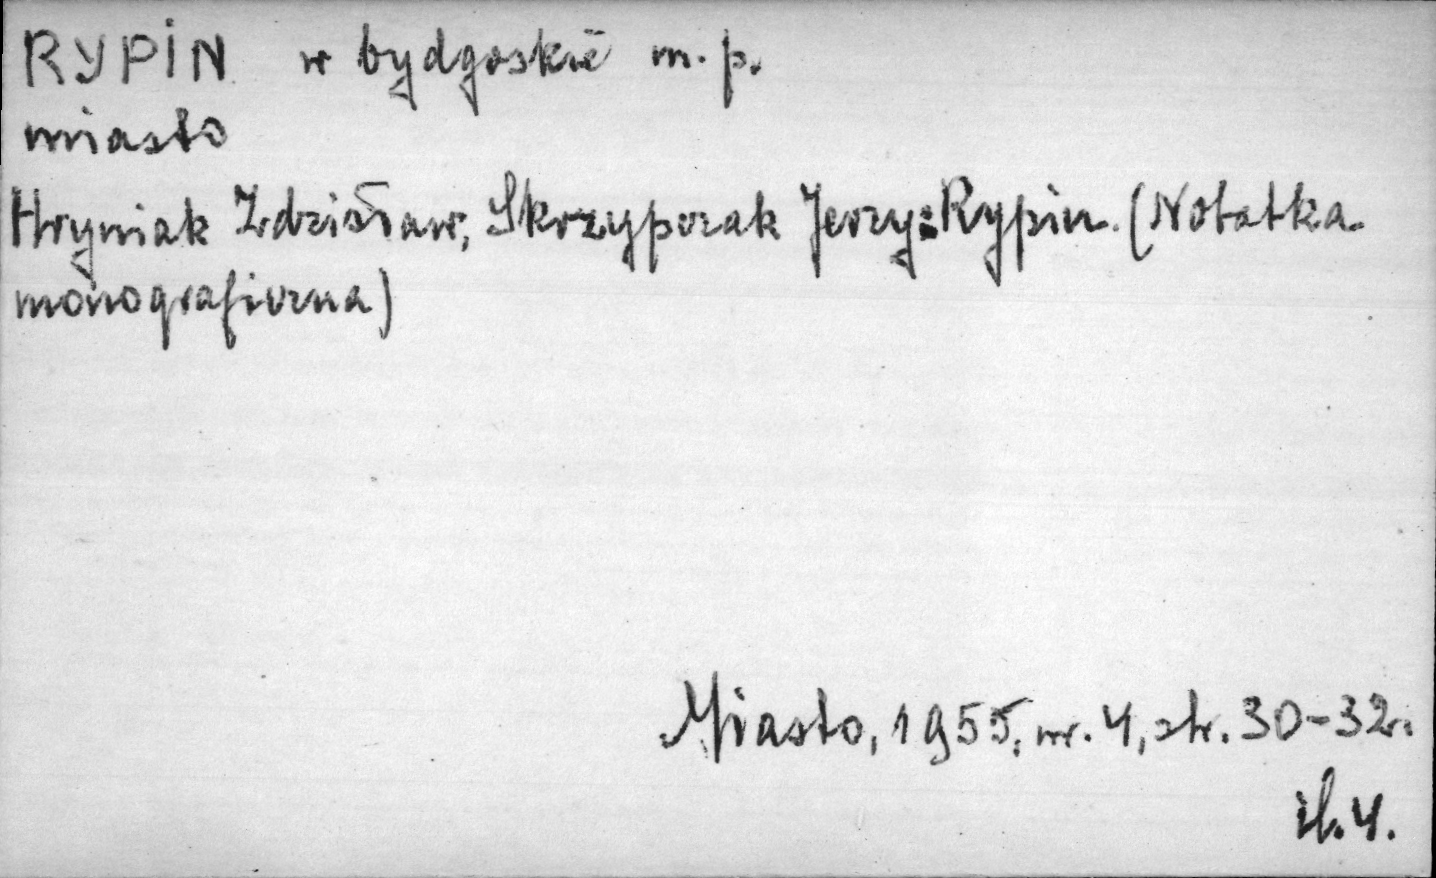 RYPIN w bydgoskie m. p.
miasto
Hryniak Zdzisław, Skrzypczak Jerzy: Rypin. (Notatka
monograficzna)
Miasto, 1955, nr. 4, str. 30-32.
il. 4.